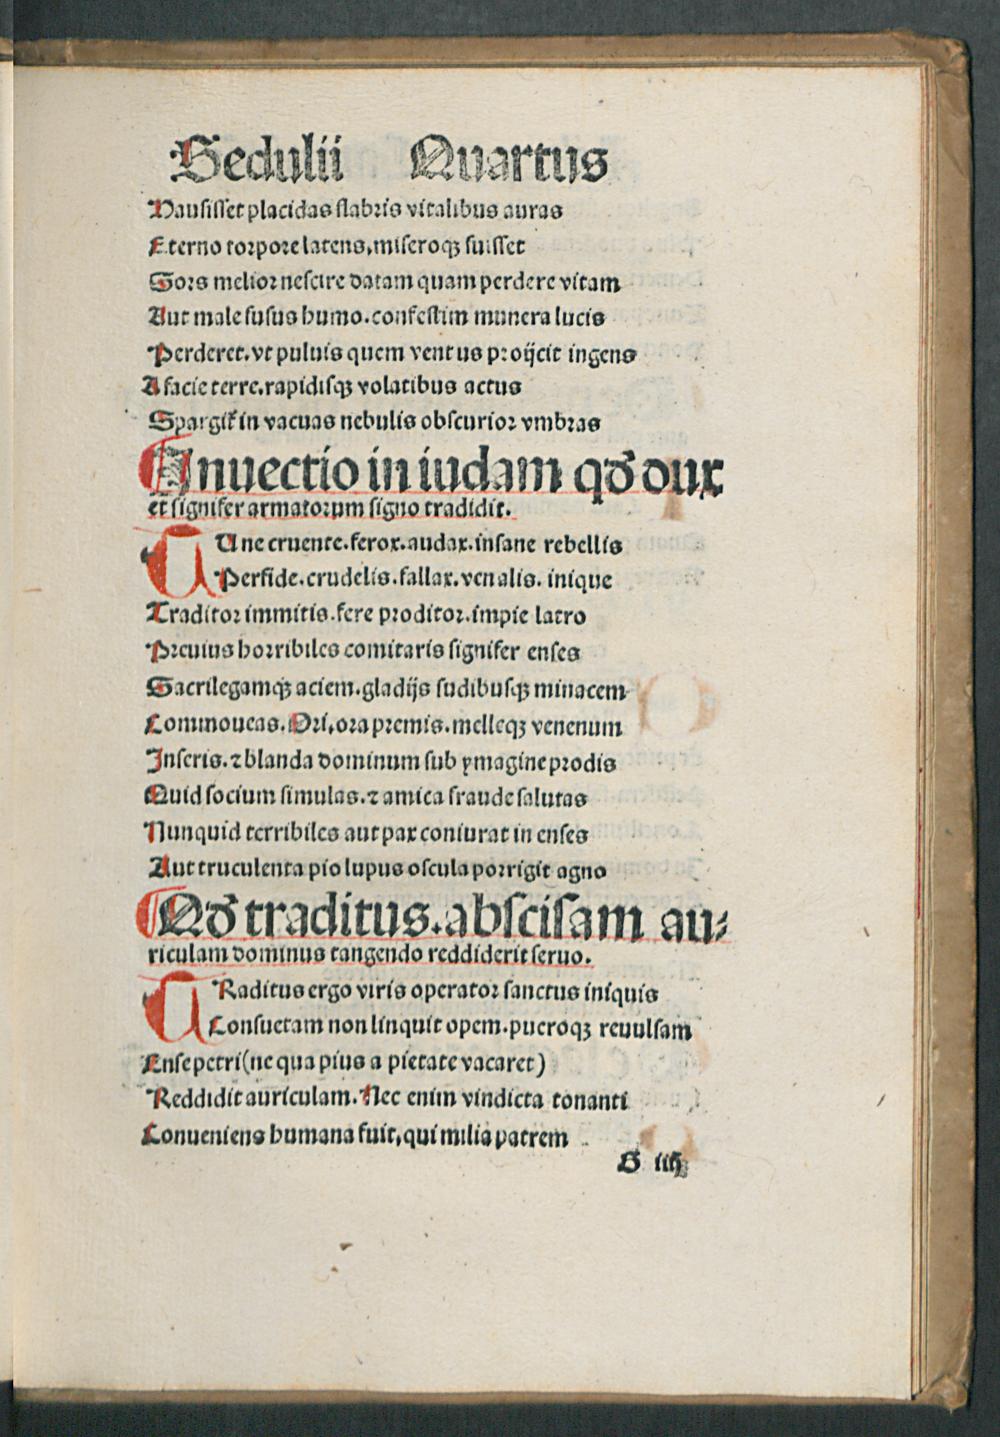 Sedulii Quartus
Hausisset placidas flabris vitalibus auras
Eterno torpore latens, miseroqꝫ fuisset
Sors melior nescire datam quam perdere vitam
Aut male fusus humo. confestim munera lucis
Perderet. vt puluis quem ventus proijcit ingens
A facie terre. rapidisqꝫ volatibus actus
Spargit᷑ in vacuas nebulis obscurior vmbras
Inuectio in iudam qď dux
et signifer armatorum signo tradidit.
Une cruente. ferox. audax. insane rebellis
Perfide. crudelis. fallax. venalis. inique
Traditor immitis. fere proditor. impie latro
Preuius horribiles comitaris signifer enses
Sacrilegamqꝫ aciem. gladijs sudibusqꝫ minacem
Commoueas. Ori, ora premis. melleqꝫ venenum
Inseris. ⁊ blanda dominum sub ymagine prodis
Quid socium simulas. ⁊ amica fraude salutas
Nunquid terribiles aut pax coniurat in enses
Aut truculenta pio lupus oscula porrigit agno
Qď traditus. abscisam au⸗
riculam dominus tangendo reddiderit seruo.
Raditus ergo viris operator sanctus iniquis
Consuetam non linquit opem. pueroqꝫ reuulsam
Ense petri (ne qua pius a pietate vacaret)
Reddidit auriculam. Nec enim vindicta tonanti
Conueniens humana fuit, qui milia patrem